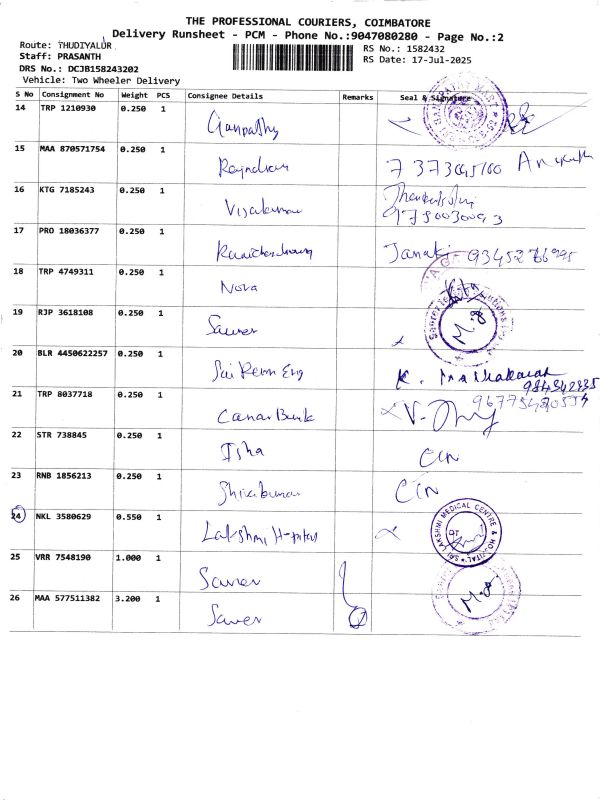 THE PROFESSIONAL COURIERS, COIMBATORE
Delivery Runsheet - PCM - Phone No.:9047080280 - Page No.:2
Route: THUDIYALUR
RS No.: 1582432
Staff: PRASANTH
RS Date: 17-Jul-2025
DRS No.: DCJB158243202
Vehicle: Two Wheeler Delivery
S No Consignment No Weight PCS Consignee Details Remarks Seal & Signature
14 TRP 1210930 0.250 1 Ganpathy
15 MAA 870571754 0.250 1 Rajndran
16 KTG 7185243 0.250 1 Vijaykumar
17 PRO 18036377 0.250 1 Janaki 9345276695
18 TRP 4749311 0.250 1 Nova
19 RJP 3618108 0.250 1 Saver M.8
20 BLR 4450622257 0.250 1 Sai Rem Eng K.
21 TRP 8037718 0.250 1 Canar Bank
22 STR 738845 0.250 1 Isha
23 RNB 1856213 0.250 1 Shivakumar
24 NKL 3580629 0.550 1 Lakshmi SRI LAKSHMI MEDICAL CENTRE & HOSPITAL
25 VRR 7548190 1.000 1 Saver
26 MAA 577511382 3.200 1 Saver M.8